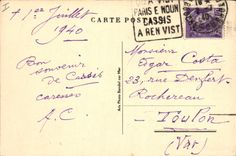 I
1er Juillet
1940
CARTE POSTALE
PARIS E NOUN
CASSIS
A REN VIST
Bon
souvenir
de Cassis
caresses
A.C.
Monsieur
Edgar Costa
23, rue Denfert-
Rochereau
Toulon
(Var)